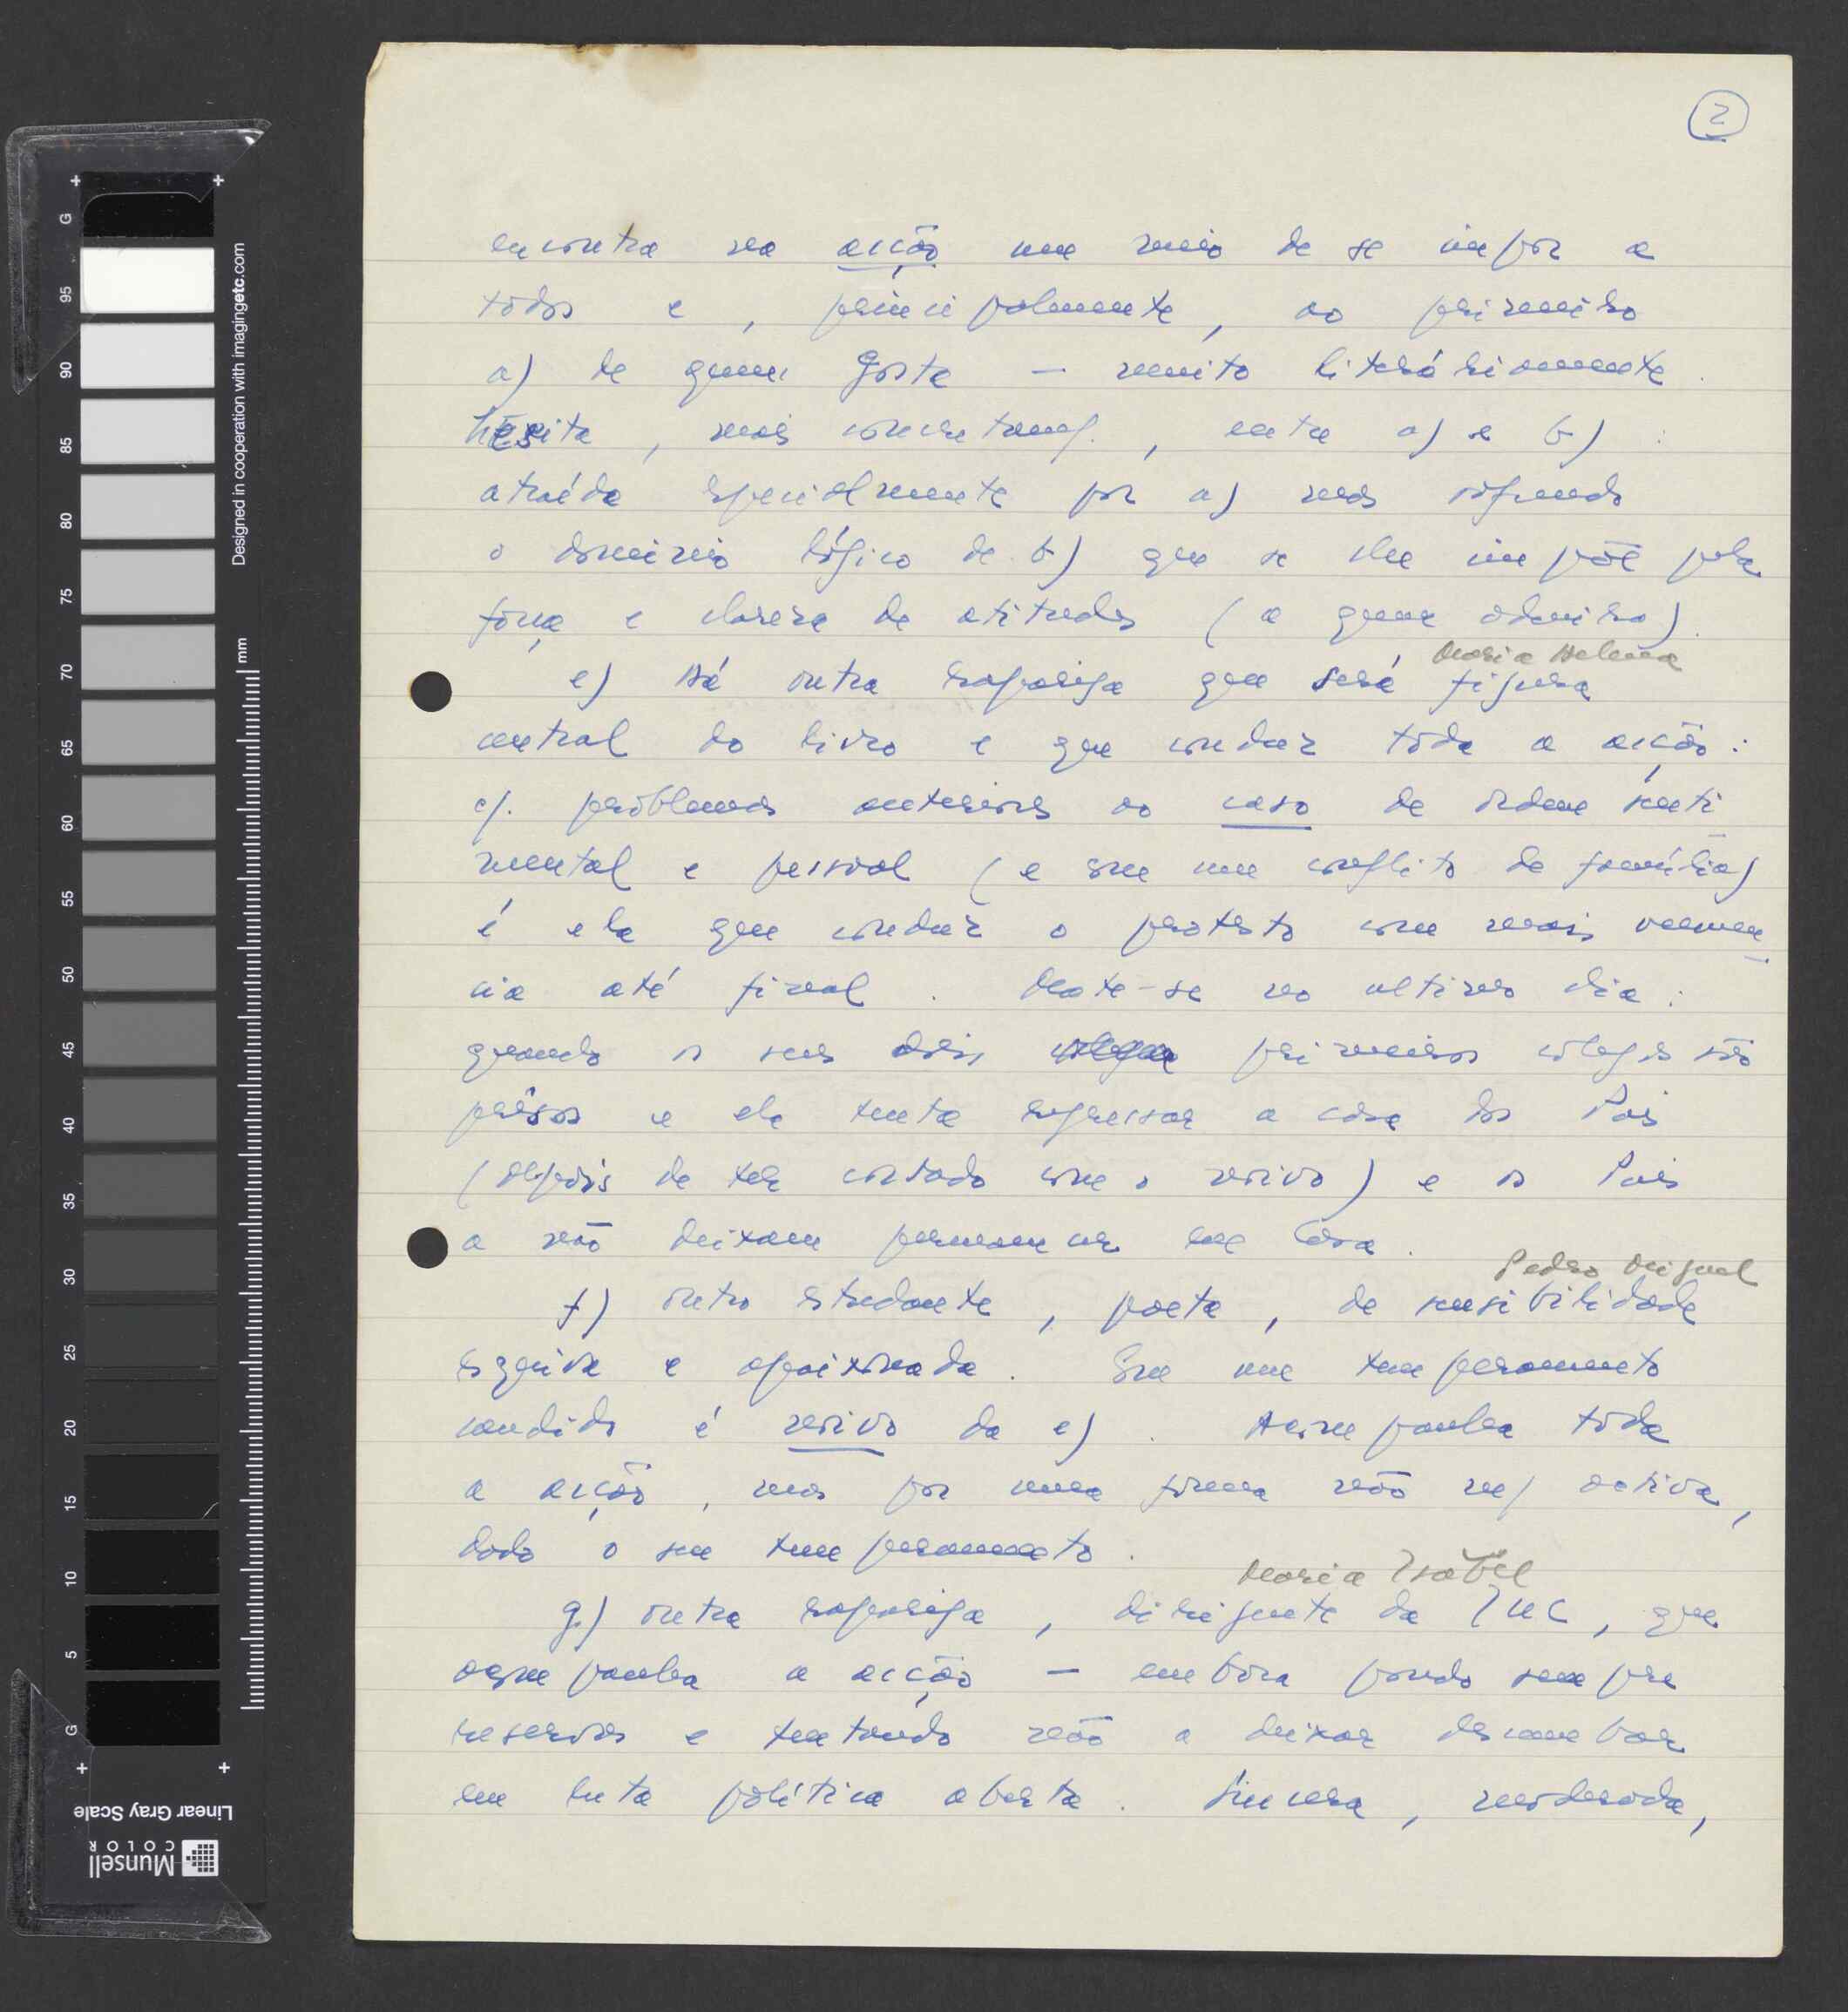 2
encontra na acção um meio de se impor a
todos e, principalmente, ao primeiro
a) de quem gosta — muito literáriamente.
Hesita, mais concretam/., entre a) e b):
atraída especialmente por a) mas sofrendo
o domínio lógico de b) que se lhe impõe pela
força e clareza de atitudes (a quem admira).
Maria Helena
e) Há outra rapariga que será figura
central do livro e que conduz tôda a acção:
c/. problemas anteriores ao caso de ordem senti
mental e pessoal (e em um conflito de família)
é ela que conduz o protesto com mais veemen
cia até final. Mata-se no ultimo dia:
quando os seus dois colegas primeiros colegas são
prêsos e ela tenta regressar a casa dos Pais
(depois de ter cortado com o noivo) e os Pais
a não deixam permanecer em casa.
Pedro Miguel
f) outro estudante, poeta, de sensibilidade
esquiva e apaixonada. Em um temperamento
candido é noivo da e). Acompanha tôda
a acção, mas por uma forma não m/ activa,
dado o seu temperamento.
Maria Isabel
g) outra rapariga, dirigente da JUC, que
acompanha a acção — embora pondo sempre
reservas e tentando não a deixar descambar
em luta política aberta. Sincera, moderada,
+ +
G 95 90 85 80 75 70 65 60 55 50 45 40 35 30 25 20 15 10 5 G
mm
Designed in cooperation with imagingetc.com
+ +
Linear Gray Scale
Munsell
COLOR